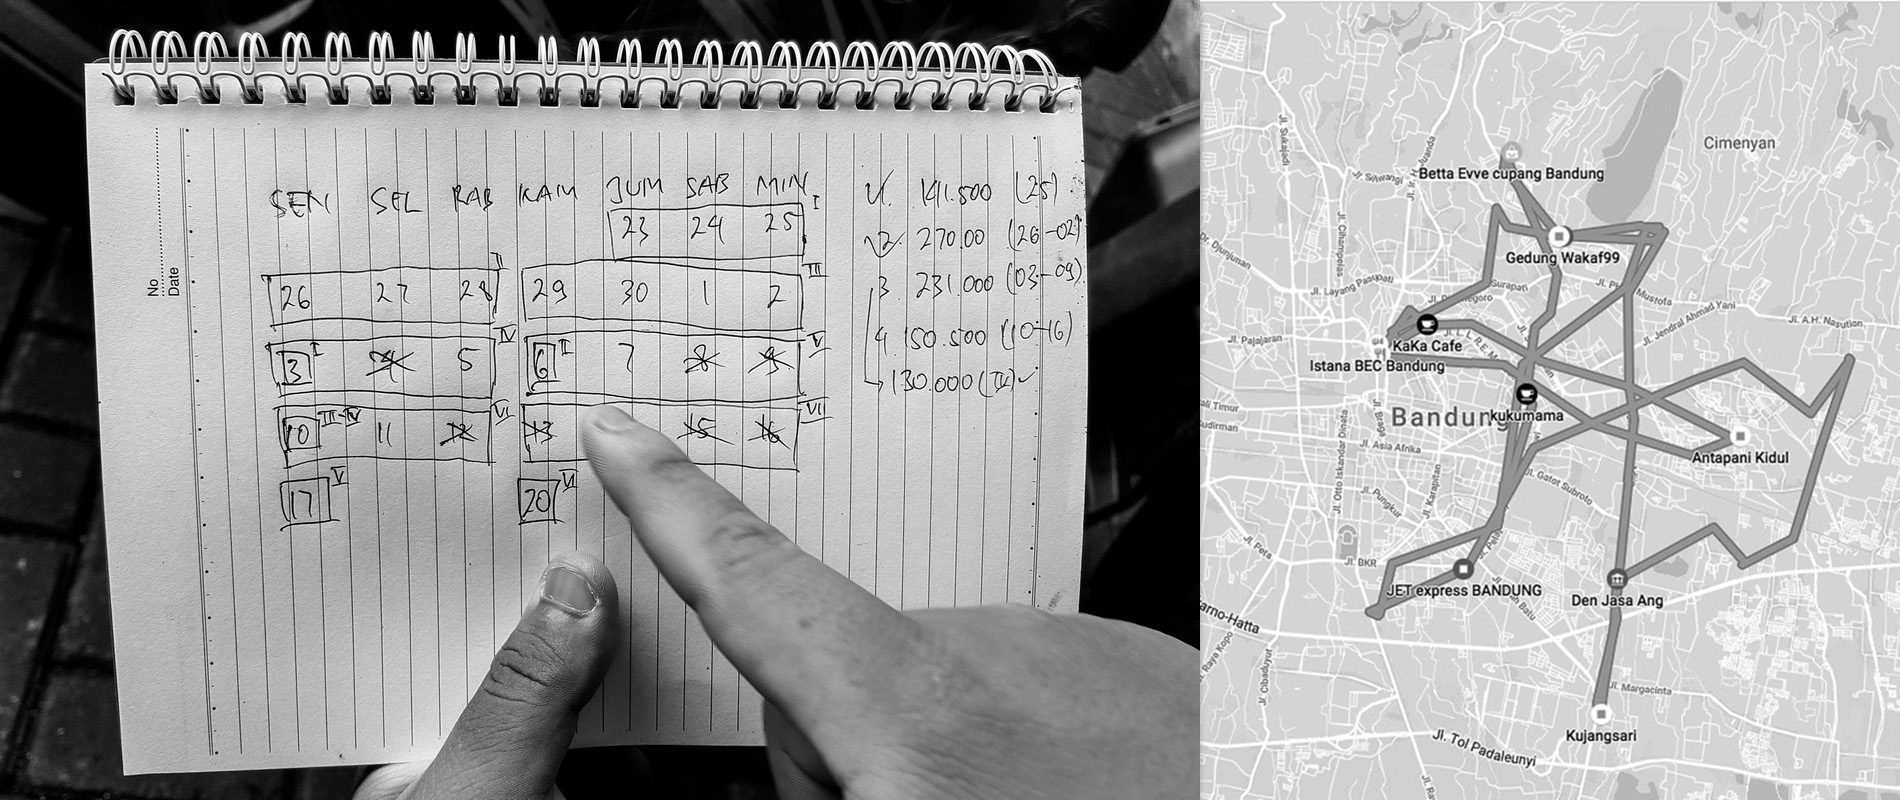 No
Date
SEN SEL RAB KAM JUM SAB MIN
23 24 25 I
26 27 28 II
29 30 1 2 III
3 I 4 5 IV
6 II 7 8 9 V
10 III-IV 11 12 VI
13 15 16 VII
17 V
20 VI
1. 141.500 (25)
2. 270.00 (26-02)
3 231.000 (03-09)
4. 150.500 (10-16)
130.000 (IV)
Cimenyan
Betta Evve cupang Bandung
Gedung Wakaf99
KaKa Cafe
Istana BEC Bandung
Bandung
kukumama
Antapani Kidul
JET express BANDUNG
Den Jasa Ang
Kujangsari
Jl. Sukajadi
Jl. Siliwangi
Jl. Ir. H. Juanda
Jl. Cihampelas
Dr. Djunjunan
Jl. Layang Pasupati
Surapati
Jl. Pajajaran
Jl. PHH. Mustofa
Jl. Jendral Ahmad Yani
Jl. A.H. Nasution
Jl. L. L. R.E. M
Jl. Braga
Jl. Asia Afrika
Jl. Otto Iskandar Dinata
Jl. Karapitan
Jl. Pungkur
Jl. Gatot Subroto
Jl. Peta
Jl. BKR
Jl. Cibaduyut
Jl. Margacinta
Jl. Tol Padaleunyi